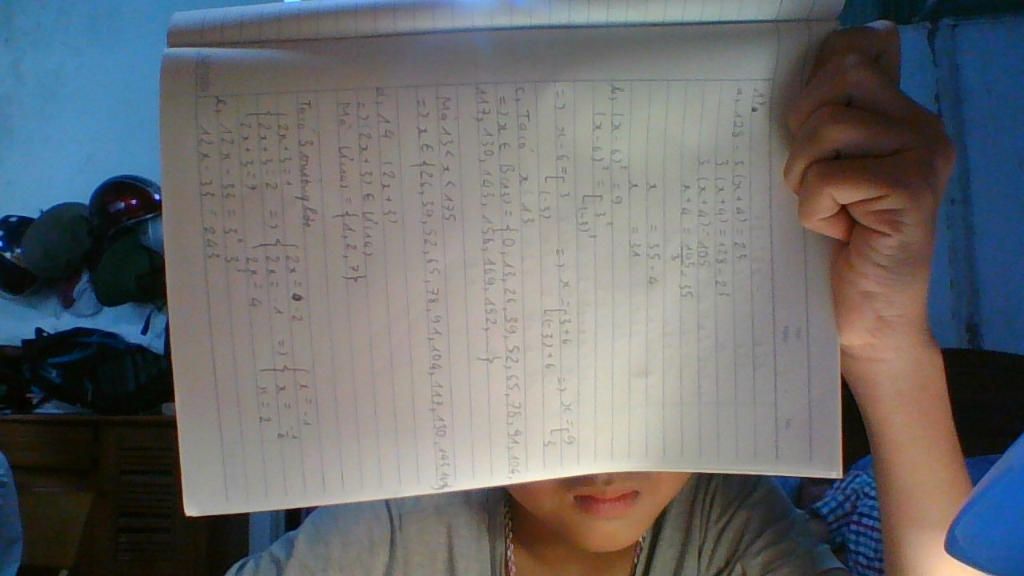 a, 128 - 3 (x+4) = 23
3 (x+4) = 128 - 23
3 (x+4) = 105
x+4 = 105/3 = 35
x = 35 - 4
x = 31
b, (x-6)² = 9
(x-6)² = [ 3²
(-3)²
=> x-6 = [ 3 => x = [ 3+6 => x = [ 9
(-3) (-3)+6 3
c, Ta có x ⋮ 13
=> x ∈ B(13) = {0, 13, 26, 39, 52, 65, 78, 91, 104,
117, 130, 143, 156, 169, 182, ...}
Mà 13 < x < 75
=> x ∈ {26, 39, 52, 65, 78, 91, 104, 117, 130, 143
d, 14 ⋮ (2x+3)
=> (2x+3) ∈ Ư(14)
Mà Ư(14) = {1, 2, 7}
Ta có 3 trường hợp
{ 2x+3 = 1 { 2x = -2 { x = -1
2x+3 = 2 => 2x = -1 => x = -1/2
2x+3 = 7 2x = 4 x = 2
12x - 33 = 3⁵
12x - 33 = 243